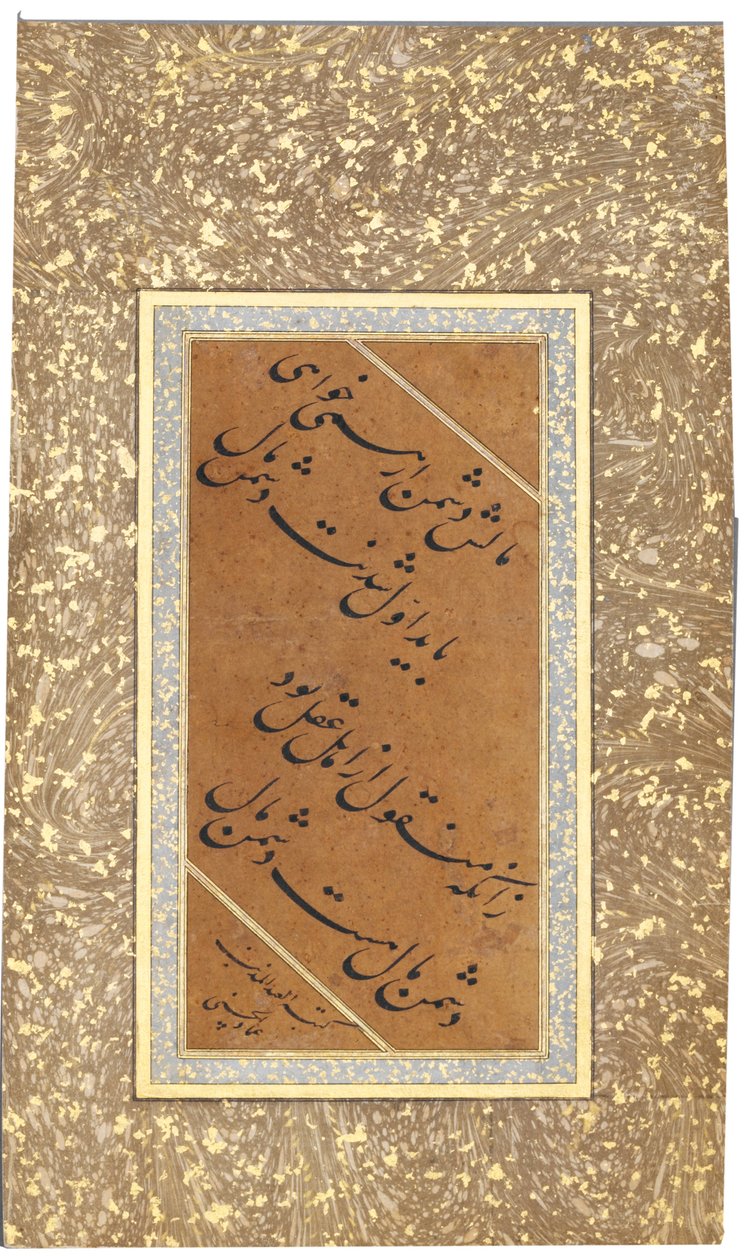 مالش دشمن ار همی خواهی
باید اوّل شدنت دشمن مال
زانکه منقول از اهل عقل بود
دشمن مال هست دشمن مال
کتبه العبد المذنب
عماد الحسنی